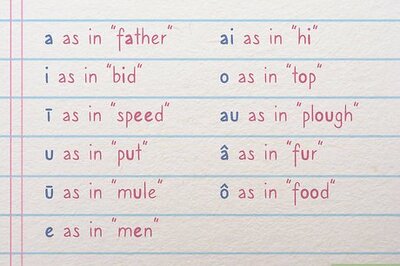 a as in "father"
i as in "bid"
ī as in "speed"
u as in "put"
ū as in "mule"
e as in "men"
ai as in "hi"
o as in "top"
au as in "plough"
â as in "fur"
ô as in "food"